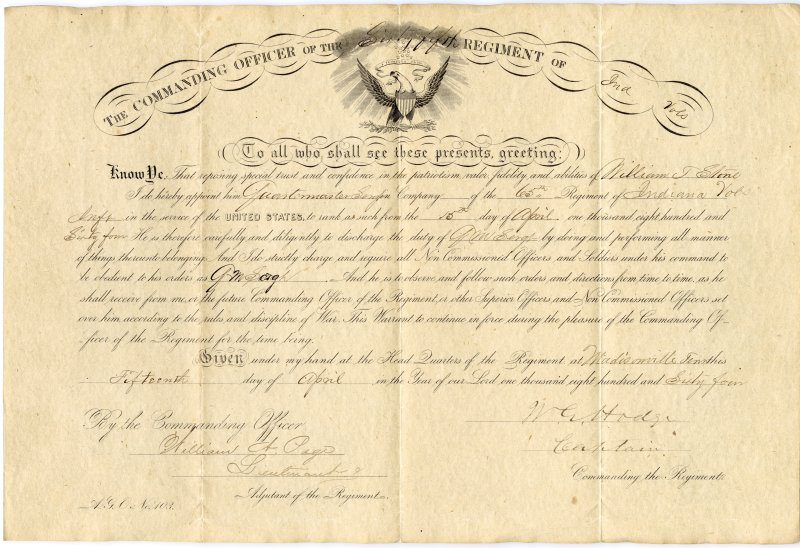 THE COMMANDING OFFICER OF THE Sixty fifth REGIMENT OF Ind Vols
To all who shall see these presents, greeting:
Know Ye, That reposing special trust and confidence in the patriotism, valor, fidelity and abilities of William J.
I do hereby appoint him Quartermaster Serg in Company of the 65th Regiment of Indiana Vols
Infy in the service of the UNITED STATES, to rank as such from the 15th day of April one thousand eight hundred and
Sixty four He is therefore carefully and diligently to discharge the duty of Q M Sergt by doing and performing all manner
of things thereunto belonging. And I do strictly charge and require all Non Commissioned Officers and Soldiers under his command to
be obedient to his orders as Q M Sergt And he is to observe and follow such orders and directions from time to time, as he
shall receive from me, or the future Commanding Officer of the Regiment, or other Superior Officers and Non Commissioned Officers set
over him, according to the rules and discipline of War. This Warrant to continue in force during the pleasure of the Commanding Of-
ficer of the Regiment for the time being.
Given under my hand at the Head Quarters of the Regiment at Madisonville Tenn this
Fifteenth day of April in the Year of our Lord one thousand eight hundred and Sixty four
By the Commanding Officer,
W. A. Hodge
William H. Page
Captain
Lieutenant &
Commanding the Regiment.
Adjutant of the Regiment.
A.G.O. No. 103.